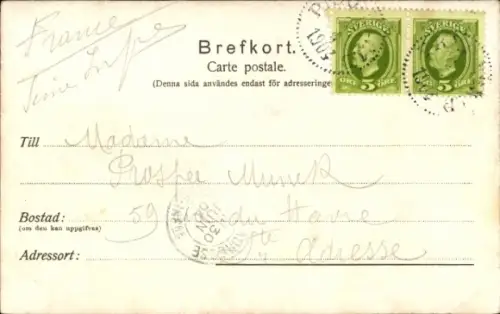 France
Seine Infre
Brefkort.
Carte postale.
(Denna sida användes endast för adresseringen
SVERIGE SVERIGE
5 ÖRE 5 ÖRE
1903
Till Madame
Prosper
Bostad: 59 du Havre
(om den kan uppgifvas)
Adressort: Adresse
30